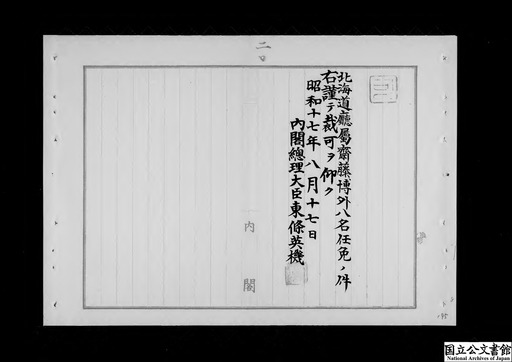 二
北海道廳屬齋藤博外八名任免ノ件
右謹テ裁可ヲ仰ク
昭和十七年八月十七日
內閣總理大臣東條英機
内閣
国立公文書館
National Archives of Japan